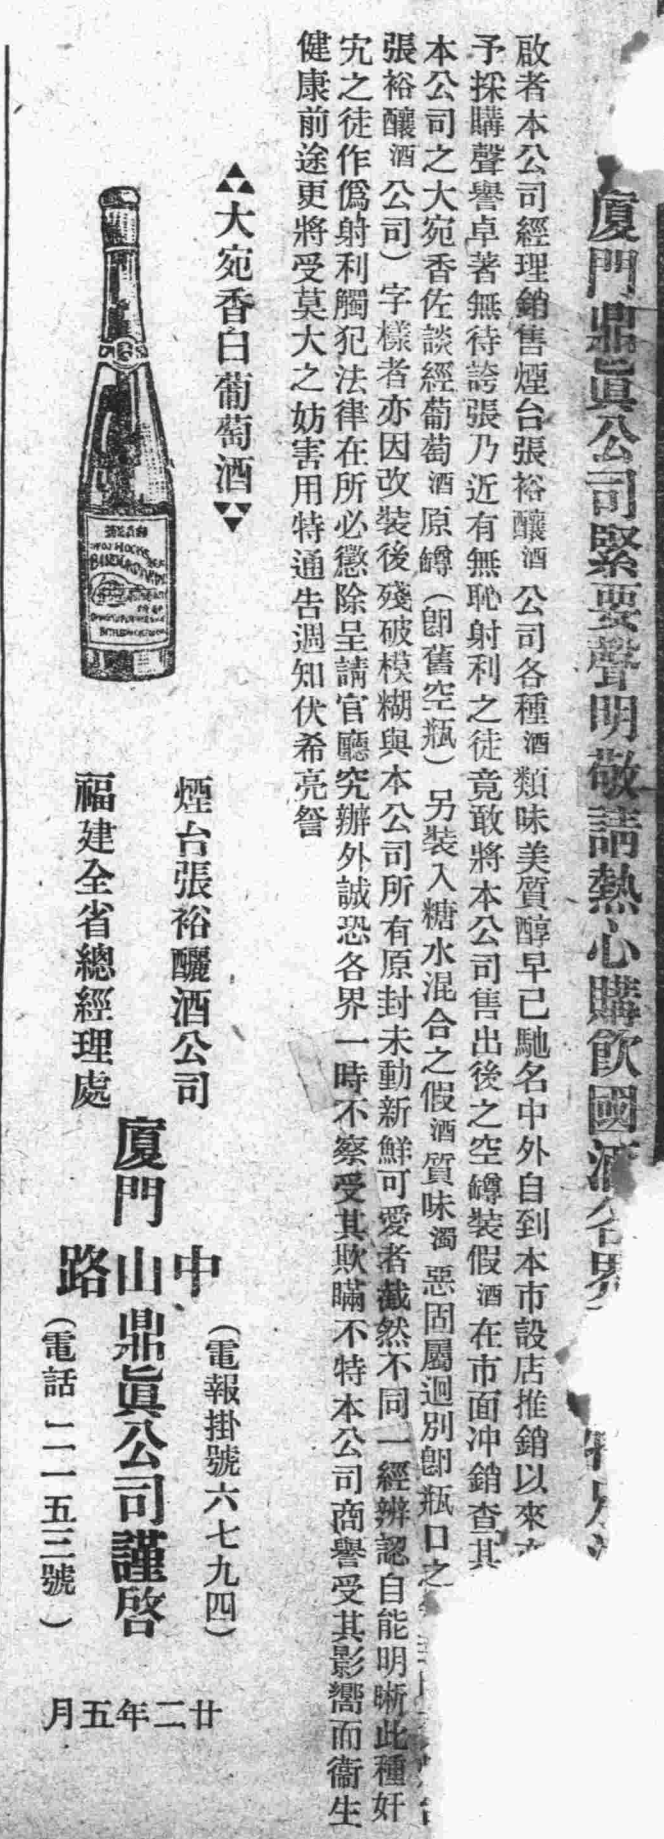 廈門鼎眞公司緊要聲明敬請熱心購飲國酒各界
啟者本公司經理銷售煙台張裕釀酒公司各種酒類味美質醇早已馳名中外自到本市設店推銷以來
予採購聲譽卓著無待誇張乃近有無恥射利之徒竟敢將本公司售出後之空罇裝假酒在市面冲銷查其
本公司之大宛香佐談經葡萄酒原罇（卽舊空瓶）另裝入糖水混合之假酒質味濁惡固屬迥別卽瓶口之
張裕釀酒公司）字樣者亦因改裝後殘破模糊與本公司所有原封未動新鮮可愛者截然不同一經辨認自能明晰此種奸
宄之徒作僞射利觸犯法律在所必懲除呈請官廳究辦外誠恐各界一時不察受其欺瞞不特本公司商譽受其影嚮而衞生
健康前途更將受莫大之妨害用特通告週知伏希亮詧
大宛香白葡萄酒
煙台張裕釀酒公司
福建全省總經理處
廈門
中山路
鼎眞公司謹啓
（電報掛號六七九四）
（電話一一五三號）
廿二年五月